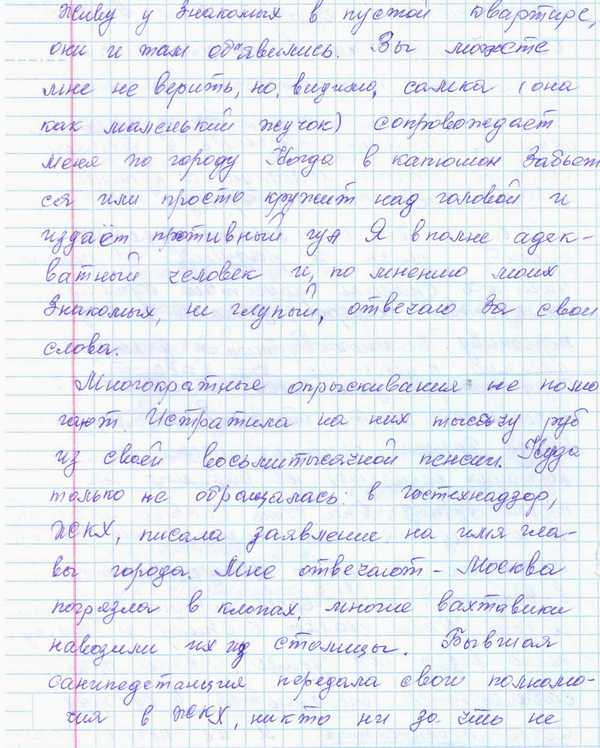 Живу у знакомых в пустой квартире,
они и там объявились. Вы можете
мне не верить, но, видимо, самка (она
как маленький жучок) сопровождает
меня по городу Когда в капюшон забьет
ся или просто кружит над головой и
издаёт противный гул Я вполне адек-
ватный человек и, по мнению моих
знакомых, не глупый, отвечаю за свои
слова.
Многократные опрыскивания не помо
гают. Истратила на них тысячу руб
из своей восьмитысячной пенсии. Куда
только не обращалась: в гостехнадзор,
ЖКХ, писала заявление на имя гла-
вы города. Мне отвечают - Москва
погрязла в клопах, многие вахтавики
навозили их из столицы. Бывшая
санэпидстанция передала свои полномо-
чия в ЖКХ, никто ни за что не